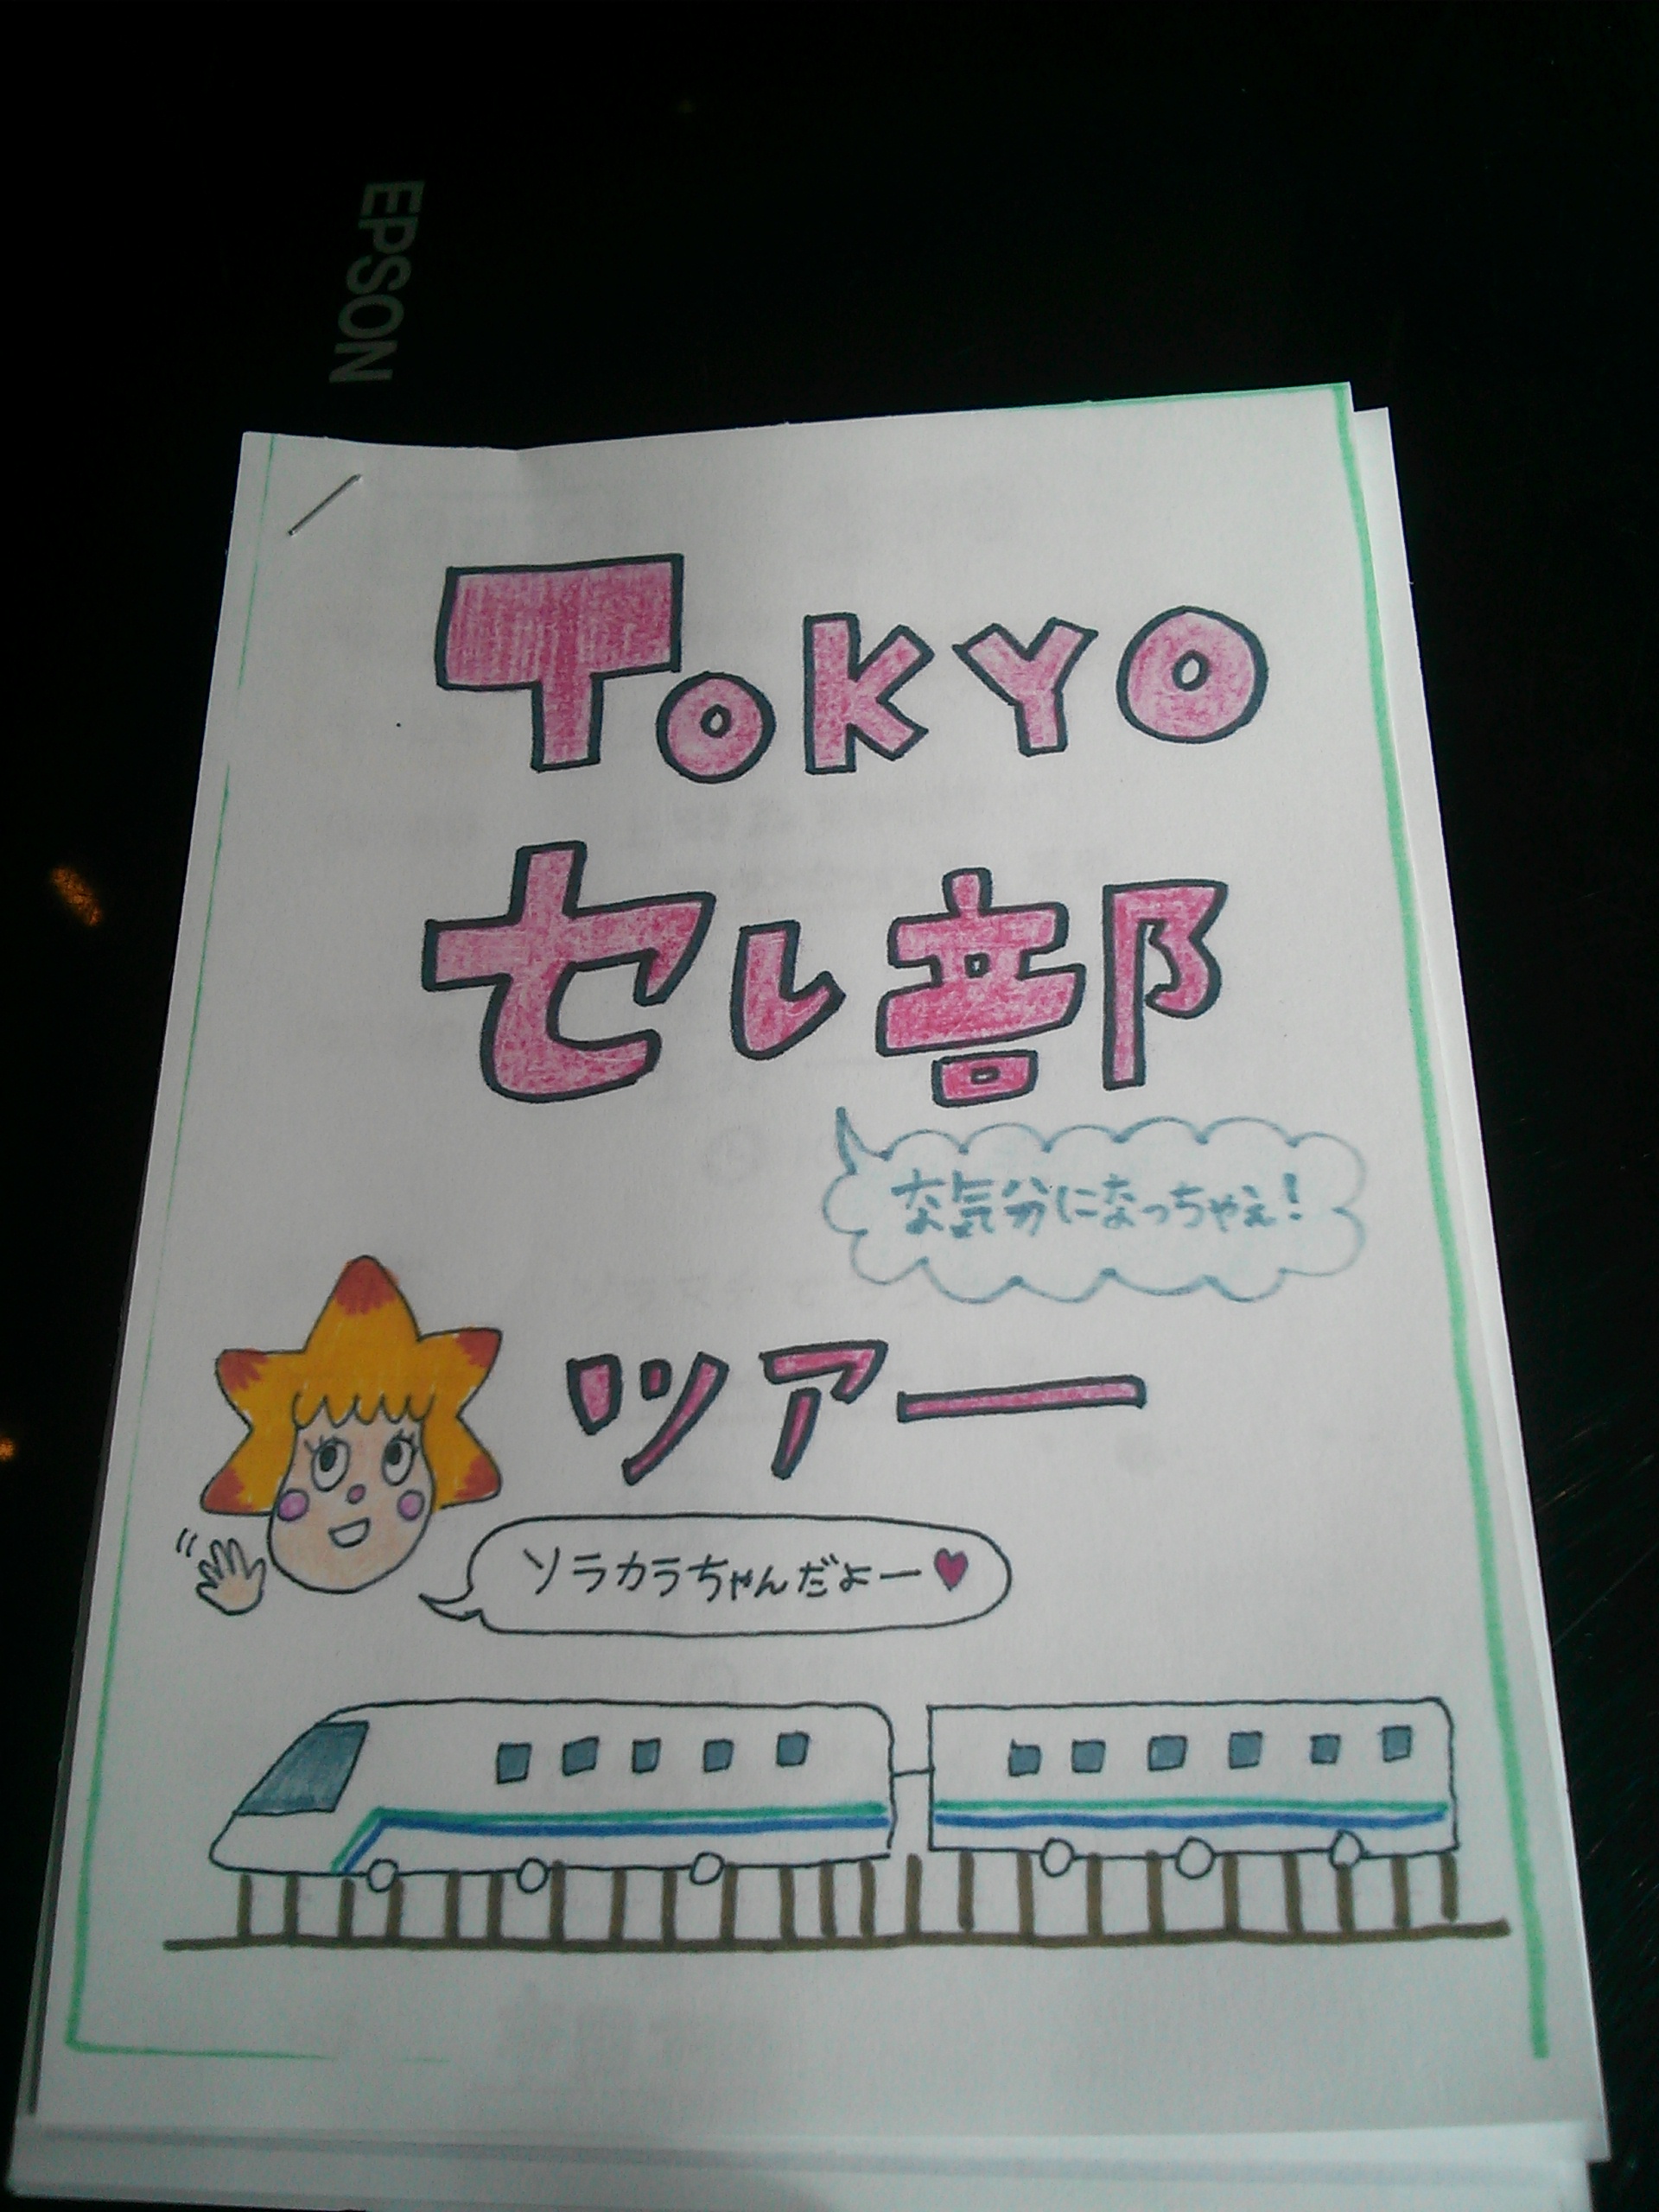 EPSON
TOKYO
セレ部
な気分になっちゃえ!
ツアー
ソラカラちゃんだよー